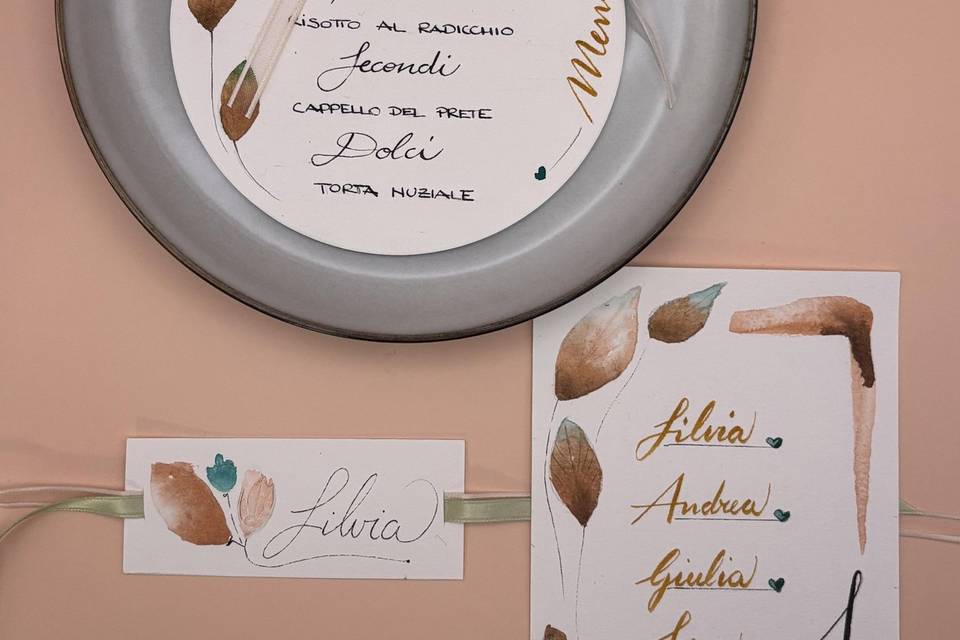 RISOTTO AL RADICCHIO
Secondi
CAPPELLO DEL PRETE
Dolci
TORTA NUZIALE
Silvia
Silvia
Andrea
Giulia